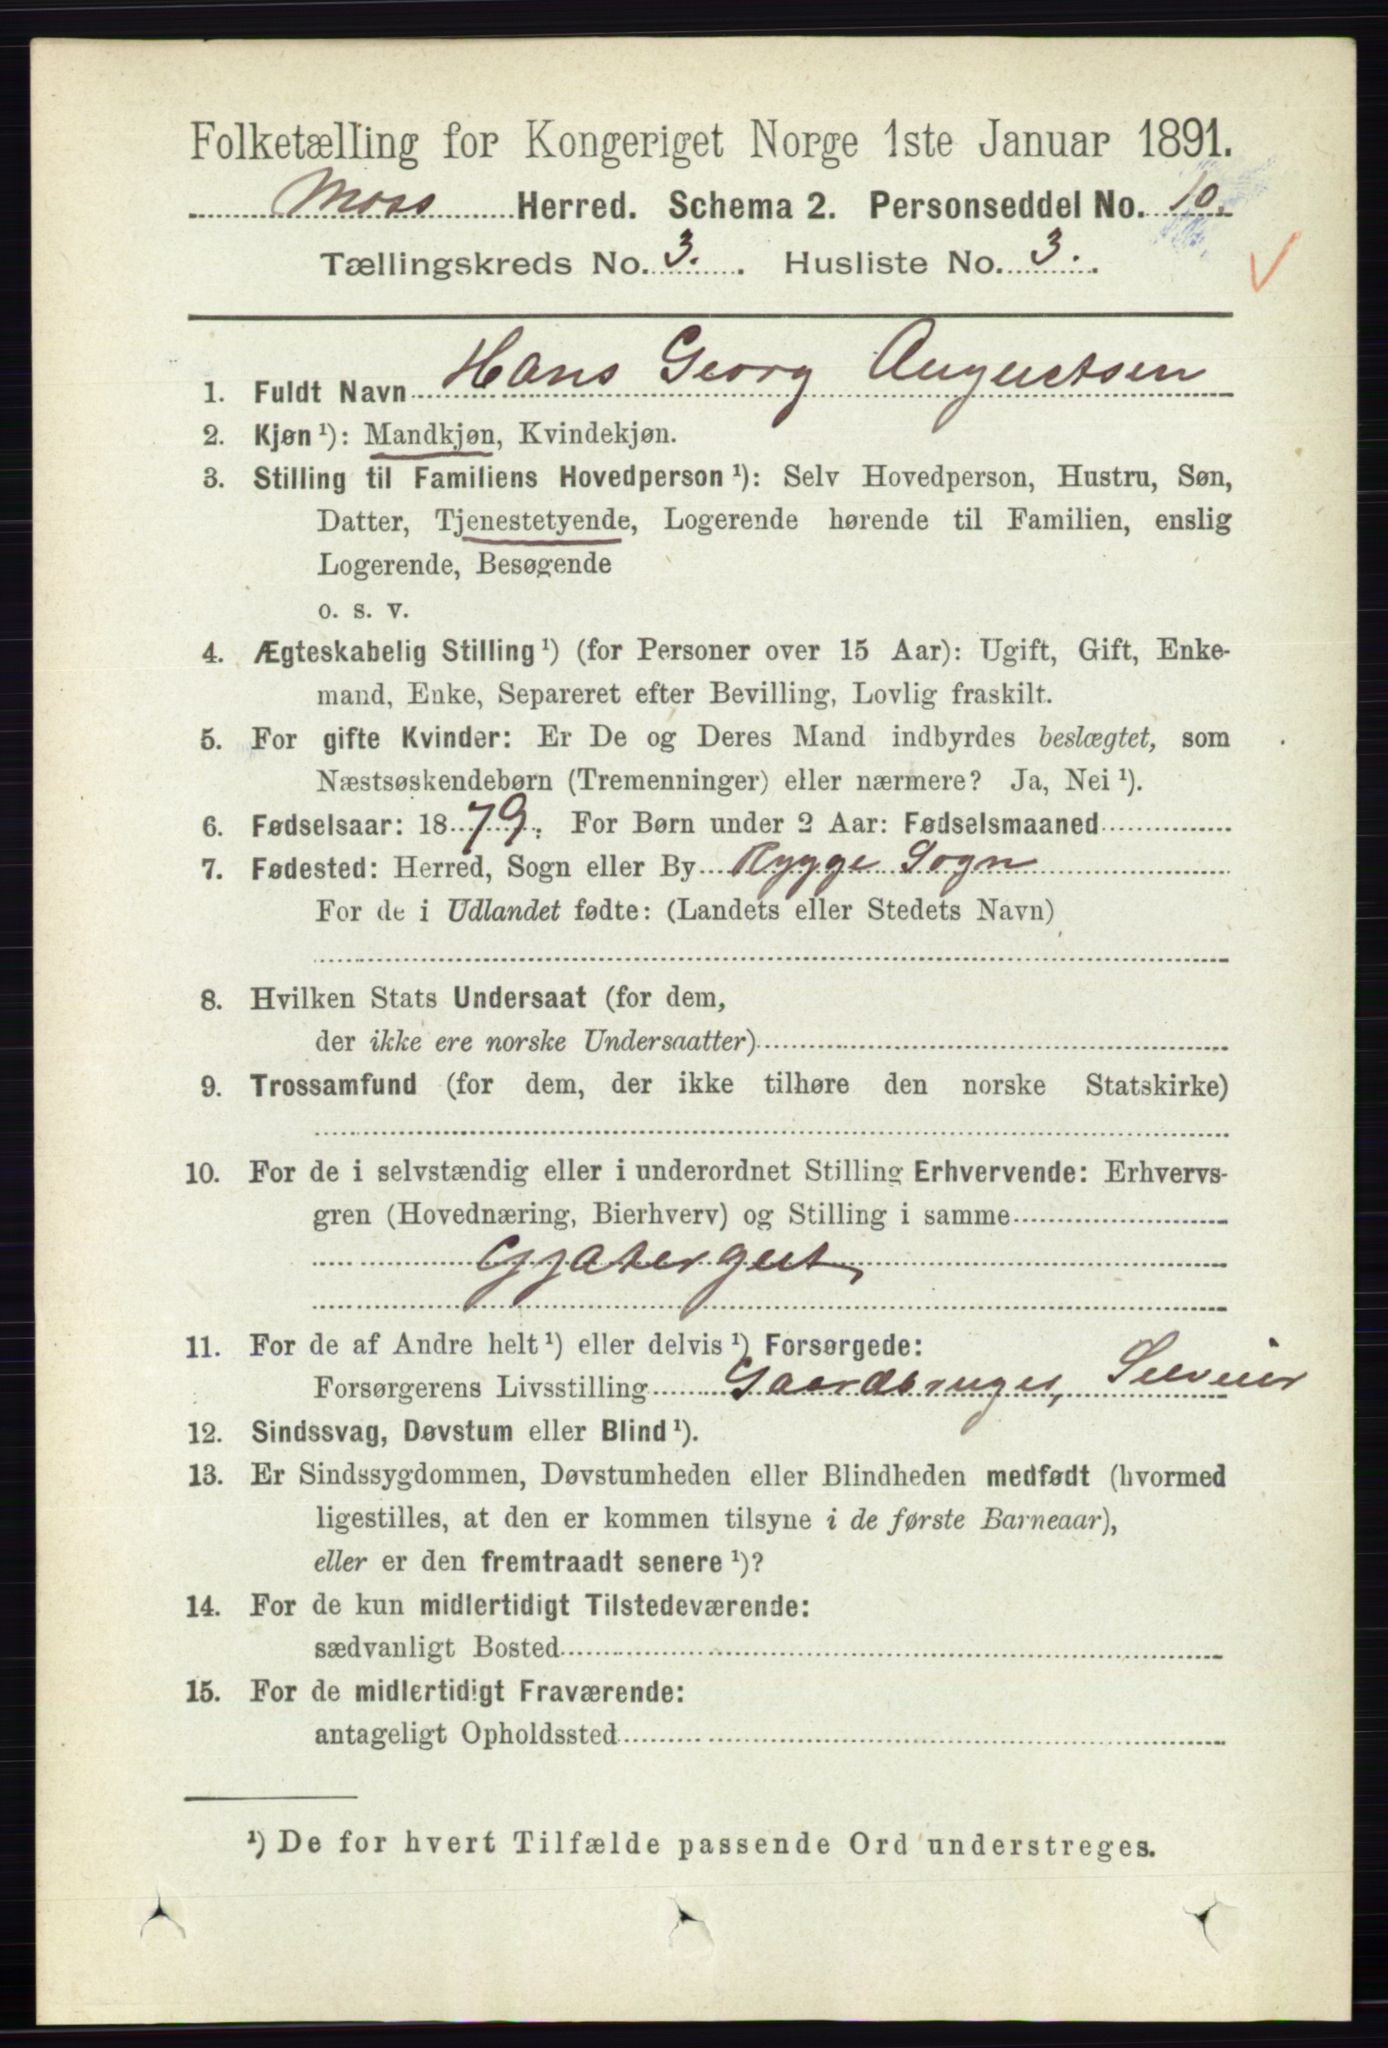 Folketælling for Kongeriget Norge 1ste Januar 1891.
Moss Herred. Schema 2. Personseddel No. 10.
Tællingskreds No. 3. Husliste No. 3.
1. Fuldt Navn Hans Georg Augustsen
2. Kjøn ¹): Mandkjøn, Kvindekjøn.
3. Stilling til Familiens Hovedperson ¹): Selv Hovedperson, Hustru, Søn,
Datter, Tjenestetyende, Logerende hørende til Familien, enslig
Logerende, Besøgende
o. s. v.
4. Ægteskabelig Stilling ¹) (for Personer over 15 Aar): Ugift, Gift, Enke-
mand, Enke, Separeret efter Bevilling, Lovlig fraskilt.
5. For gifte Kvinder: Er De og Deres Mand indbyrdes beslægtet, som
Næstsøskendebørn (Tremenninger) eller nærmere? Ja, Nei ¹).
6. Fødselsaar: 1879. For Børn under 2 Aar: Fødselsmaaned
7. Fødested: Herred, Sogn eller By Rygge Sogn
For de i Udlandet fødte: (Landets eller Stedets Navn)
8. Hvilken Stats Undersaat (for dem,
der ikke ere norske Undersaatter)
9. Trossamfund (for dem, der ikke tilhøre den norske Statskirke)
10. For de i selvstændig eller i underordnet Stilling Erhvervende: Erhvervs-
gren (Hovednæring, Bierhverv) og Stilling i samme
Gjætergut
11. For de af Andre helt ¹) eller delvis ¹) Forsørgede:
Forsørgerens Livsstilling Gaardbruger, Selveier
12. Sindssvag, Døvstum eller Blind ¹).
13. Er Sindssygdommen, Døvstumheden eller Blindheden medfødt (hvormed
ligestilles, at den er kommen tilsyne i de første Barneaar),
eller er den fremtraadt senere ¹)?
14. For de kun midlertidigt Tilstedeværende:
sædvanligt Bosted
15. For de midlertidigt Fraværende:
antageligt Opholdssted
¹) De for hvert Tilfælde passende Ord understreges.